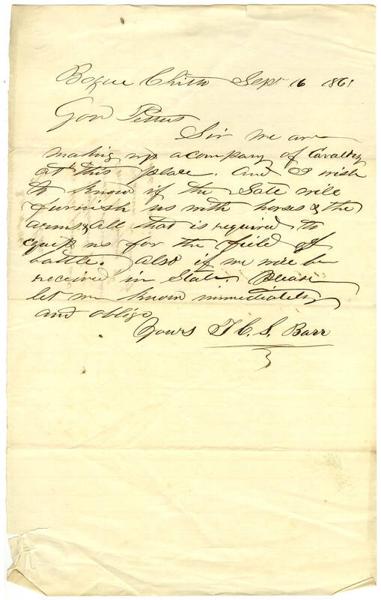 Bogue Chitto Sept 16 1861
Gov Pettus
Sir we are
making up a company of Cavalry
at this place. and I wish
to know if the State will
furnish us with horses & the
arms & all that is required to
equip us for the field of
battle. also if we will be
received in State Please
let me know immediately
and oblige
Yours T C. S. Barr